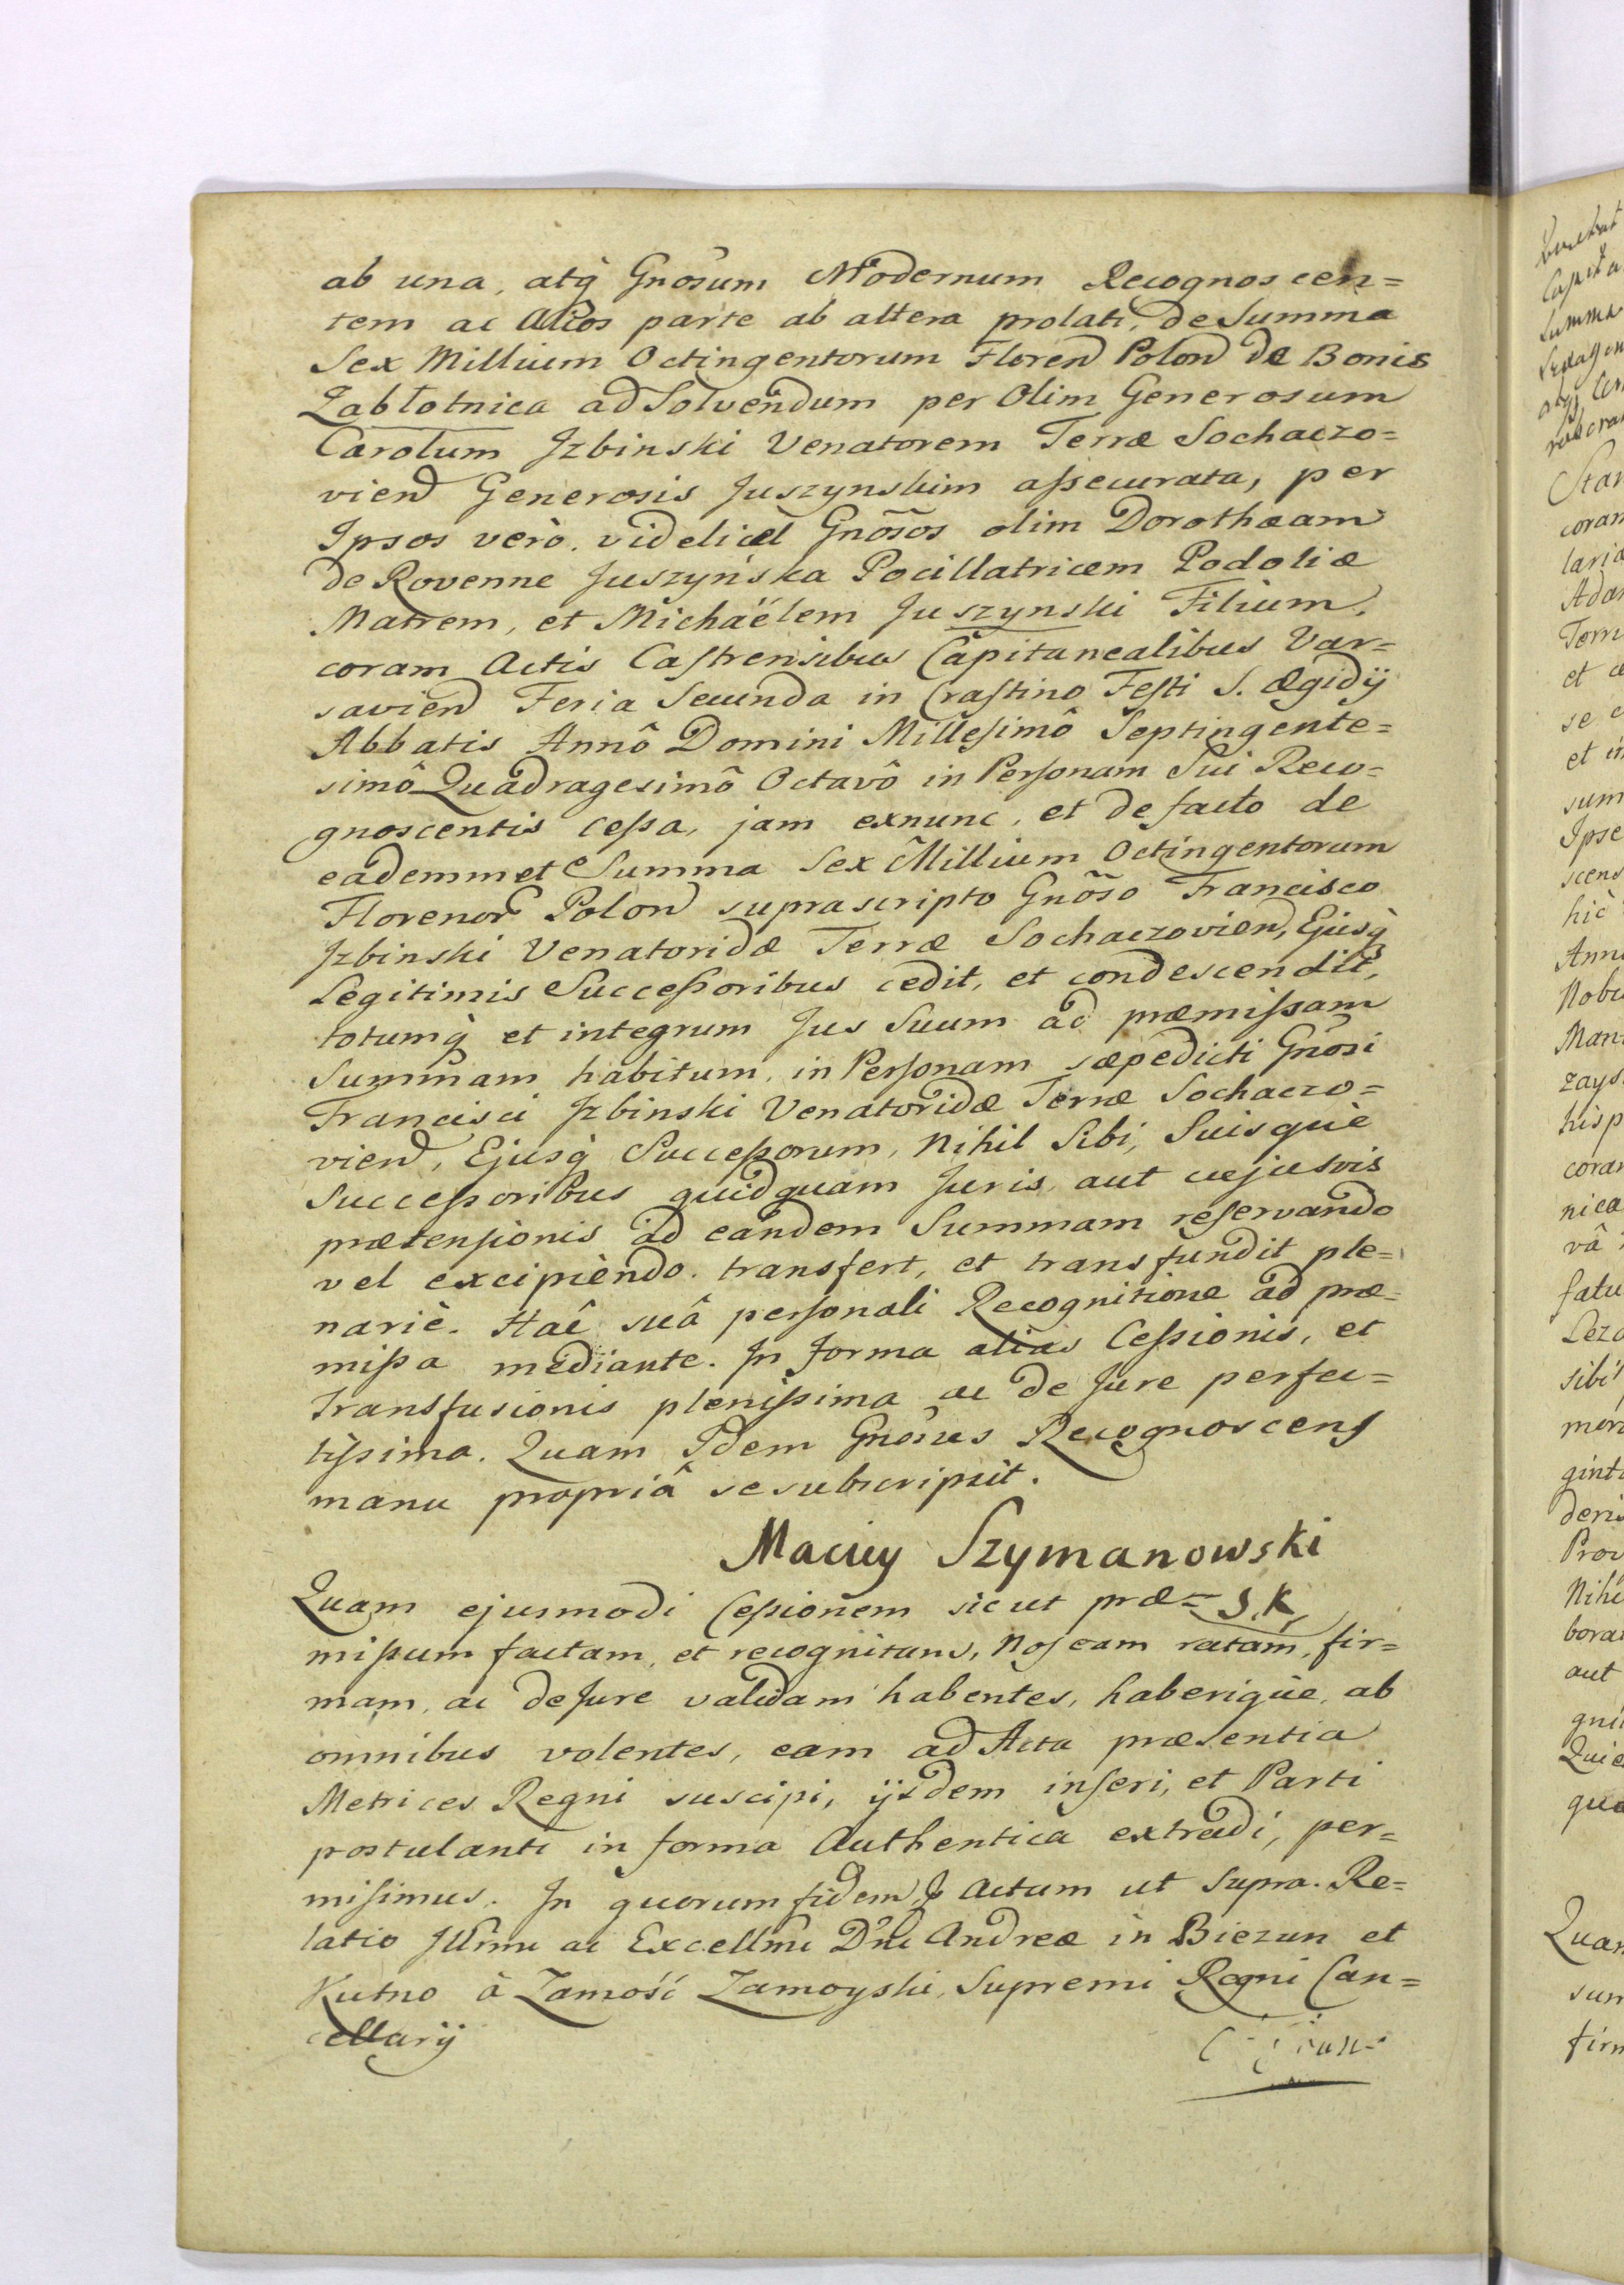 ab una, atq̀ Gnõsum Modernum Recognoscen=
tem ac Alios parte ab altera prolati, de Summa
Sex Millium Octingentorum Floren Polon de Bonis
Zabłotnica ad Solvendum per Olim Generosum
Carolum Jzbinski Venatorem Terræ Sochaczo=
vien Generosis Juszynskim aſsecurata, per
Ipsos verò videlicet Gnõsos olim Dorothæam
de Rovenne Juszyńska Pocillatricem Podoliæ
Matrem, et Michaélem Juszynski Filium,
coram Actis Caſtrensibus Capitanealibus Var=
savien Feria Secunda in Craſtino Feſti S. Ægidÿ
Abbatis Annô Domini Milleſimô Septingente=
simô Quadragesimô Octavô in Perſonam Sui Reco=
gnoscentis ceſsa, jam exnunc, et de facto de
eademmet Summa Sex Millium Octingentorum
Florenor Polon suprascripto Gnõso Francisco
Jzbinski Venatoridæ Terræ Sochaczovien, Ejusq̀
Legitimis Succeſsoribus cedit, et condescendit,
totumq̀ et integrum Jus Suum ad præmiſsam
Summam habitum, in Perſonam sæpedicti Gnõsi
Francisci Jzbinski Venatoridæ Terræ Sochaczo=
vien, Ejusq̀ Succeſsorum, Nihil Sibi, Suisquè
Succeſsoribus quidquam Juris aut cujusvis
prætenſionis ad eandem Summam reſervando
vel excipièndo. transfert, et transfundit ple=
nariè. Hac suâ perſonali Recognitione ad præ=
miſsa mediante. Jn forma alias Ceſsionis, et
Transfusionis pleniſsima ac de Jure perfec=
tiſsima. Quam Idem Gnõsus Recognoscens
manu propriâ se subscripsit.
Maciey Szymanowski
Quam ejusmodi Ceſsionem sicut præ= S. K.
miſsum factam, et recognitam, Nos eam ratam, fir=
mam, ac de Jure validam habentes, haberiquè, ab
omnibus volentes, eam ad Acta præsentia
Metrices Regni suscipi, ijsdem inſeri, et Parti
postulanti in forma Authentica extradi, per=
miſimus. Jn quorum fidem Actum ut Supra. Re=
latio Jllm̃i ac Excellm̃i Dñi Andreæ in Biezun et
Kutno à Zamość Zamoyski, Supremi Regni Can=
cellarÿ